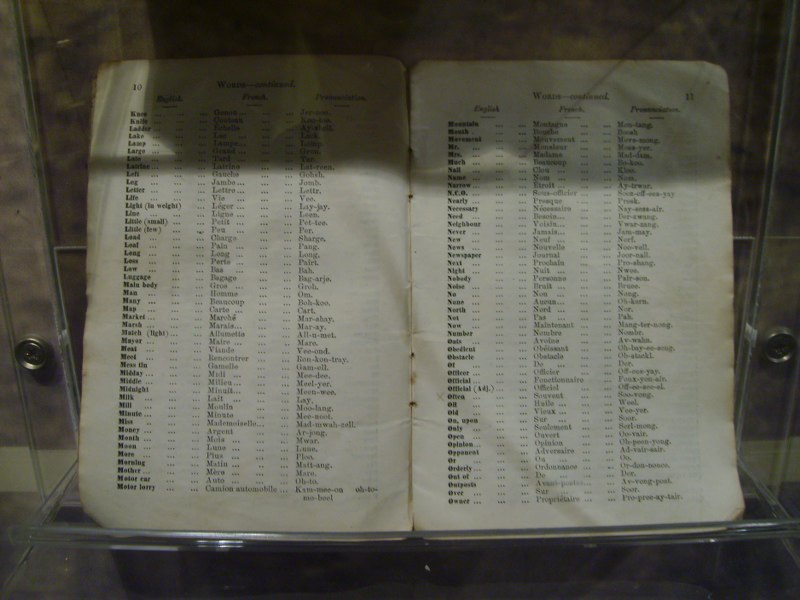 10
WORDS—continued.
English. French. Pronunciation.
Knee ... Genou ...
Knife ... Couteau
Ladder ... Echelle
Lake ... Lac ... Lack.
Lamp ... Lampe ... Lomp
Large ... Grand ... Gron.
Late ... Tard ... Tar.
Latrine ... Latrine ... Lat-reen.
Left ... Gauche ... Gohsh.
Leg ... Jambe ... Jomb.
Letter ... Lettre ... Lettr.
Life ... Vie ... Vee.
Light (in weight) ... Léger ... Lay-jay.
Line ... Ligne ... Leen.
Little (small) ... Petit ... Pet-tee.
Little (few) ... Peu ... Per.
Load ... Charge ... Sharge.
Loaf ... Pain ... Pang.
Long ... Long ... Long.
Loss ... Perte ... Pairt.
Low ... Bas ... Bah.
Luggage ... Bagage ... Bag-arje.
Main body ... Gros ... Groh.
Man ... Homme ... Om.
Many ... Beaucoup ... Boh-koo.
Map ... Carte ... Cart.
Market ... Marché ... Mar-shay.
Marsh ... Marais ... Mar-ay.
Match (light) ... Allumette ... All-u-met.
Mayor ... Maire ... Mare.
Meat ... Viande ... Vee-end.
Meet ... Rencontrer ... Ron-kon-tray.
Mess tin ... Gamelle ... Gam-ell.
Midday ... Midi ... Mee-dee.
Middle ... Milieu ... Meel-yer.
Midnight ... Minuit ... Meen-wee.
Milk ... Lait ... Lay.
Mill ... Moulin ... Moo-lang.
Minute ... Minute ... Mee-noot.
Miss ... Mademoiselle ... Mad-mwah-zell.
Money ... Argent ... Ar-jong.
Month ... Mois ... Mwar.
Moon ... Lune ... Lune.
More ... Plus ... Ploo.
Morning ... Matin ... Matt-ang.
Mother ... Mère ... Mare.
Motor car ... Auto ... Oh-to.
Motor lorry ... Camion automobile ... Kam-mee-on oh-to-
mo-beel
WORDS—continued. 11
English French. Pronunciation.
Mountain ... Montagne ... Mon-tang.
Mouth ... Bouche ... Boosh
Movement ... Mouvement ... Move-mong.
Mr. ... Monsieur ... Moss-yer.
Mrs. ... Madame ... Mad-dam.
Much ... Beaucoup ... Bo-koo.
Nail ... Clou ... Kloo.
Name ... Nom ... Nom.
Narrow ... Étroit ... Ay-trwar.
N.C.O. ... Sous-officier ... Soos-off-ees-yay
Nearly ... Presque ... Presk.
Necessary ... Nécessaire ... Nay-sess-air.
Need ... Besoin ... Ber-swang.
Neighbour ... Voisin ... Vwar-zang.
Never ... Jamais ... Jam-may.
New ... Neuf ... Nerf.
News ... Nouvelle ... Noo-vell.
Newspaper ... Journal ... Joor-nall.
Next ... Prochain ... Pro-shang.
Night ... Nuit ... Nwee.
Nobody ... Personne ... Pair-son.
Noise ... Bruit ...
No ... Non ... Nong.
None ... Aucun ... Oh-kern.
North ... Nord ... Nor.
Not ... Pas ... Pah.
Now ... Maintenant ... Mang-ter-nong.
Number ... Nombre ... Nombr.
Oats ... Avoine ... Av-wahn.
Obedient ... Obéissant ... Oh-bay-ee-song.
Obstacle ... Obstacle ... Ob-stackl.
Of ... De ... Der.
Officer ... Officier ... Off-ees-yay.
Official ... Fonctionnaire ... Fonx-yon-air.
Official (Adj.) ... Officiel ... Off-ee-see-el.
Often ... Souvent ... Soo-vong.
Oil ... Huile ... Weel.
Old ... Vieux ... Vee-yer.
On, upon ... Sur ... Soor.
Only ... Seulement ... Serl-mong.
Open ... Ouvert ... Oo-vair.
Opinion ... Opinion ... Oh-peen-yong.
Opponent ... Adversaire ... Ad-vair-sair.
Or ... Ou ... Oo.
Orderly ... Ordonnance ... Or-don-nonce.
Out of ... De ... Der.
Outposts ... Avant-postes ... Av-vong-post.
Over ... Sur ... Soor.
Owner ... Propriétaire ... Pro-pree-ay-tair.